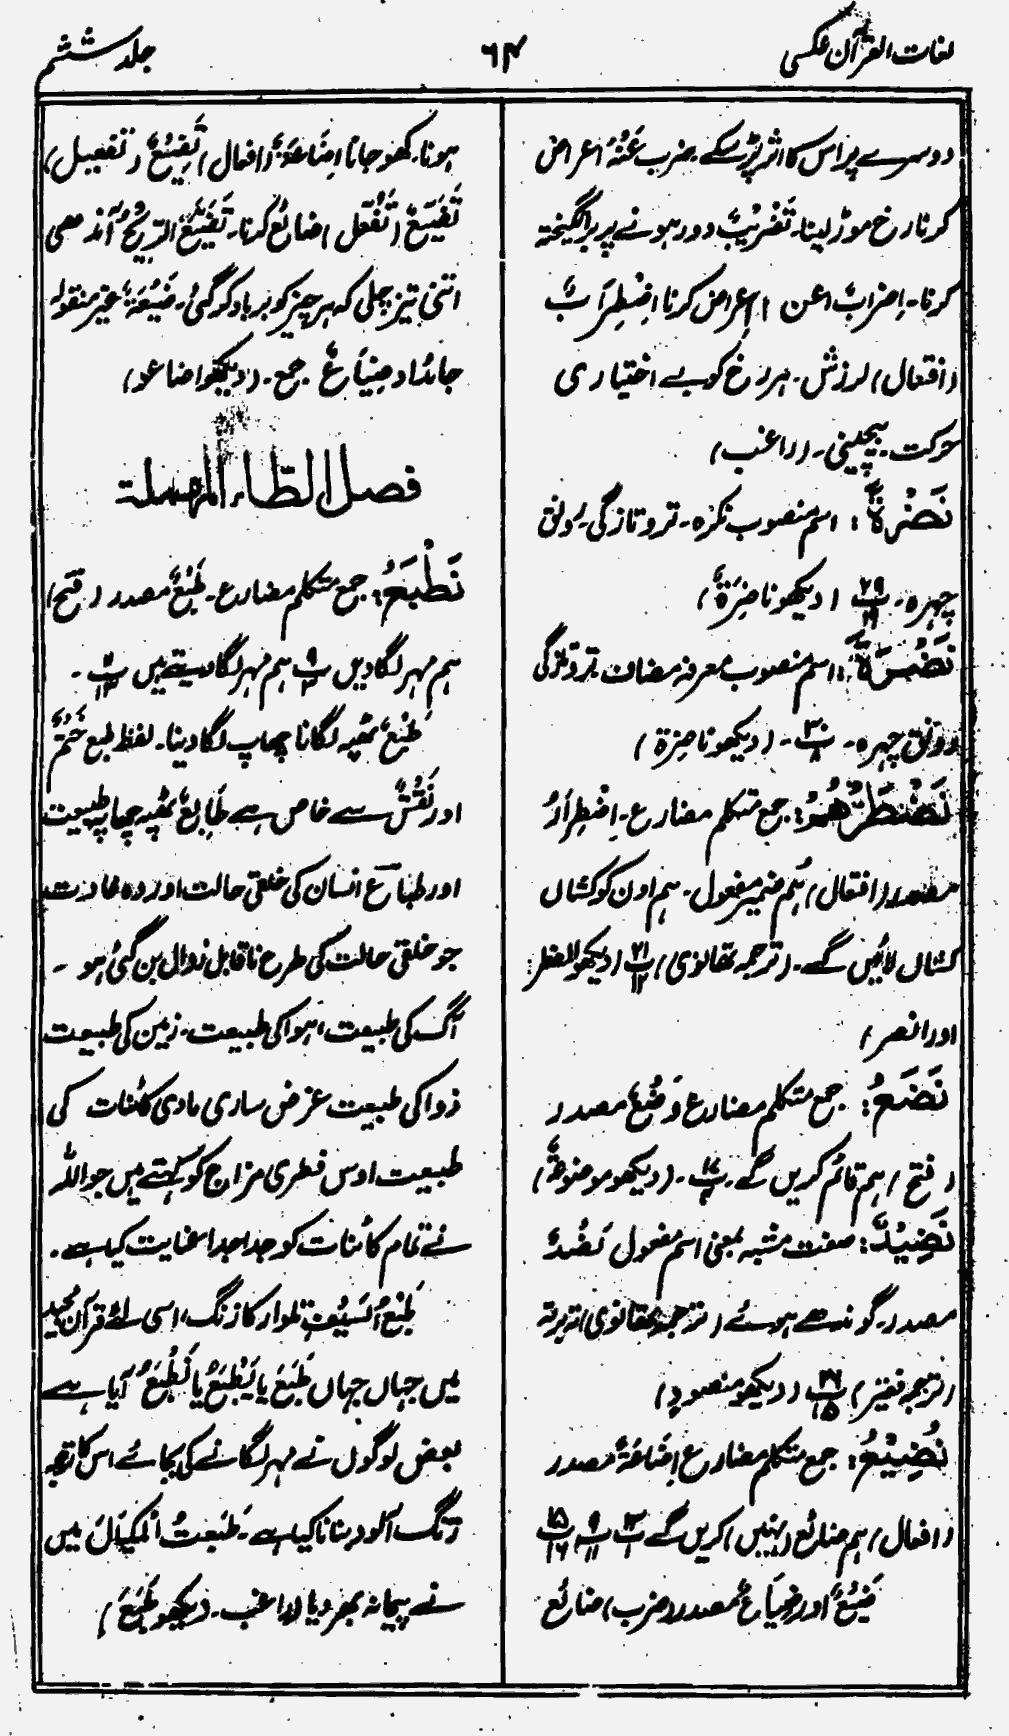 لغات القرآن عکسی
۶۴
جلد ششم
دوسرے پر اس کا اثر پڑ سکے۔ ضرب عَنْہُ اعراض
کرنا رخ موڑ لینا۔ تَضْرِیْبٌ دور ہونے پر برانگیختہ
کرنا۔ اِضرابٌ (عن) اعراض کرنا اِضْطِرَابٌ
(افتعال) لرزش۔ ہر رخ کو بے اختیاری
حرکت۔ بیچینی۔ (راغب)
نَضْرَةً: اسم منصوب نکرہ۔ تروتازگی۔ رونق
چہرہ۔ پ۲۹ ۱۹ (دیکھو ناضِرَةٌ)
نَضْرَةَ: اسم منصوب معرفہ مضاف تروتازگی
رونق چہرہ۔ پ۳۰ ۸۔ (دیکھو ناضِرَة)
نَضْطَرُّھُمْ: جمع متکلم مضارع۔ اِضْطِرَارٌ
مصدر (افتعال) ہُم ضمیر مفعول۔ ہم اون کو کشاں
کشاں لائیں گے۔ (ترجمہ تھانوی) پ۲۱ ۱۲ (دیکھو
اور انصر)
نَضَعُ: جمع متکلم مضارع وَضْعٌ مصدر
(فتح) ہم قائم کریں گے۔ پ۱۷۔ (دیکھو موضوعَةٌ)
نَضِیْدٌ: صفت مشبہ بمعنی اسم مفعول نَضْدٌ
مصدر۔ گوندھے ہوئے (ترجمہ تھانوی) تہ بر تہ
(ترجمہ) پ۲۶ ۱۵ (دیکھو منضودٍ)
نُضِیْعُ: جمع متکلم مضارع اِضَاعَةٌ مصدر
(افعال) ہم ضائع (نہیں) کریں گے پ۱۳ ۱ پ۹ ۱۱ پ۱۵ ۱۶
ضَیْعٌ اور ضِیَاعٌ مصدر (ضرب) ضائع
ہونا۔ کھو جانا اِضَاعَةٌ (افعال) تَضِیْیْعٌ (تفعیل)
تَضَیُّعٌ (تَفَعُّل) ضائع کرنا۔ تَضَیَّعَ الرِّیْحُ آندھی
اتنی تیز چلی کہ ہر چیز کو برباد کر گئی۔ ضَیْعَةٌ غیر منقولہ
جائداد ضِیَاعٌ جمع۔ (دیکھو اضاعوا)
فصل الطاء المهملة
نَطْبَعُ: جمع متکلم مضارع۔ طَبْعٌ مصدر (فتح)
ہم مہر لگا دیں پ۹ ۲ ہم مہر لگا دیتے ہیں پ۱۱ ۱۳۔
طَبْعٌ ٹھپہ لگانا چھاپ لگا دینا۔ لفظ طبع خَتْمٌ
اور نَقْشٌ سے خاص ہے طَابِعٌ ٹھپہ چھاپ طبیعت
اور طباعٌ انسان کی خلقی حالت اور وہ عادت
جو خلقی حالت کی طرح ناقابل زوال بن گئی ہو۔
آگ کی طبیعت، ہوا کی طبیعت۔ زمین کی طبیعت
دوا کی طبیعت غرض ساری مادی کائنات کی
طبیعت اوس فطری مزاج کو کہتے ہیں جو اللہ
نے تمام کائنات کو جدا جدا عنایت کیا ہے۔
طَبْعُ السَّیْفِ تلوار کا زنگ، اسی لئے قرآن مجید
میں جہاں جہاں طَبَعَ یا یَطْبَعُ یا نَطْبَعُ آیا ہے
بعض لوگوں نے مہر لگانے کی بجائے اس کا ترجمہ
زنگ آلود بنانا کیا ہے۔ طَبَعتُ الْمِکْیَالَ میں
نے پیمانہ بھر دیا (راغب۔ دیکھو طَبَعَ)